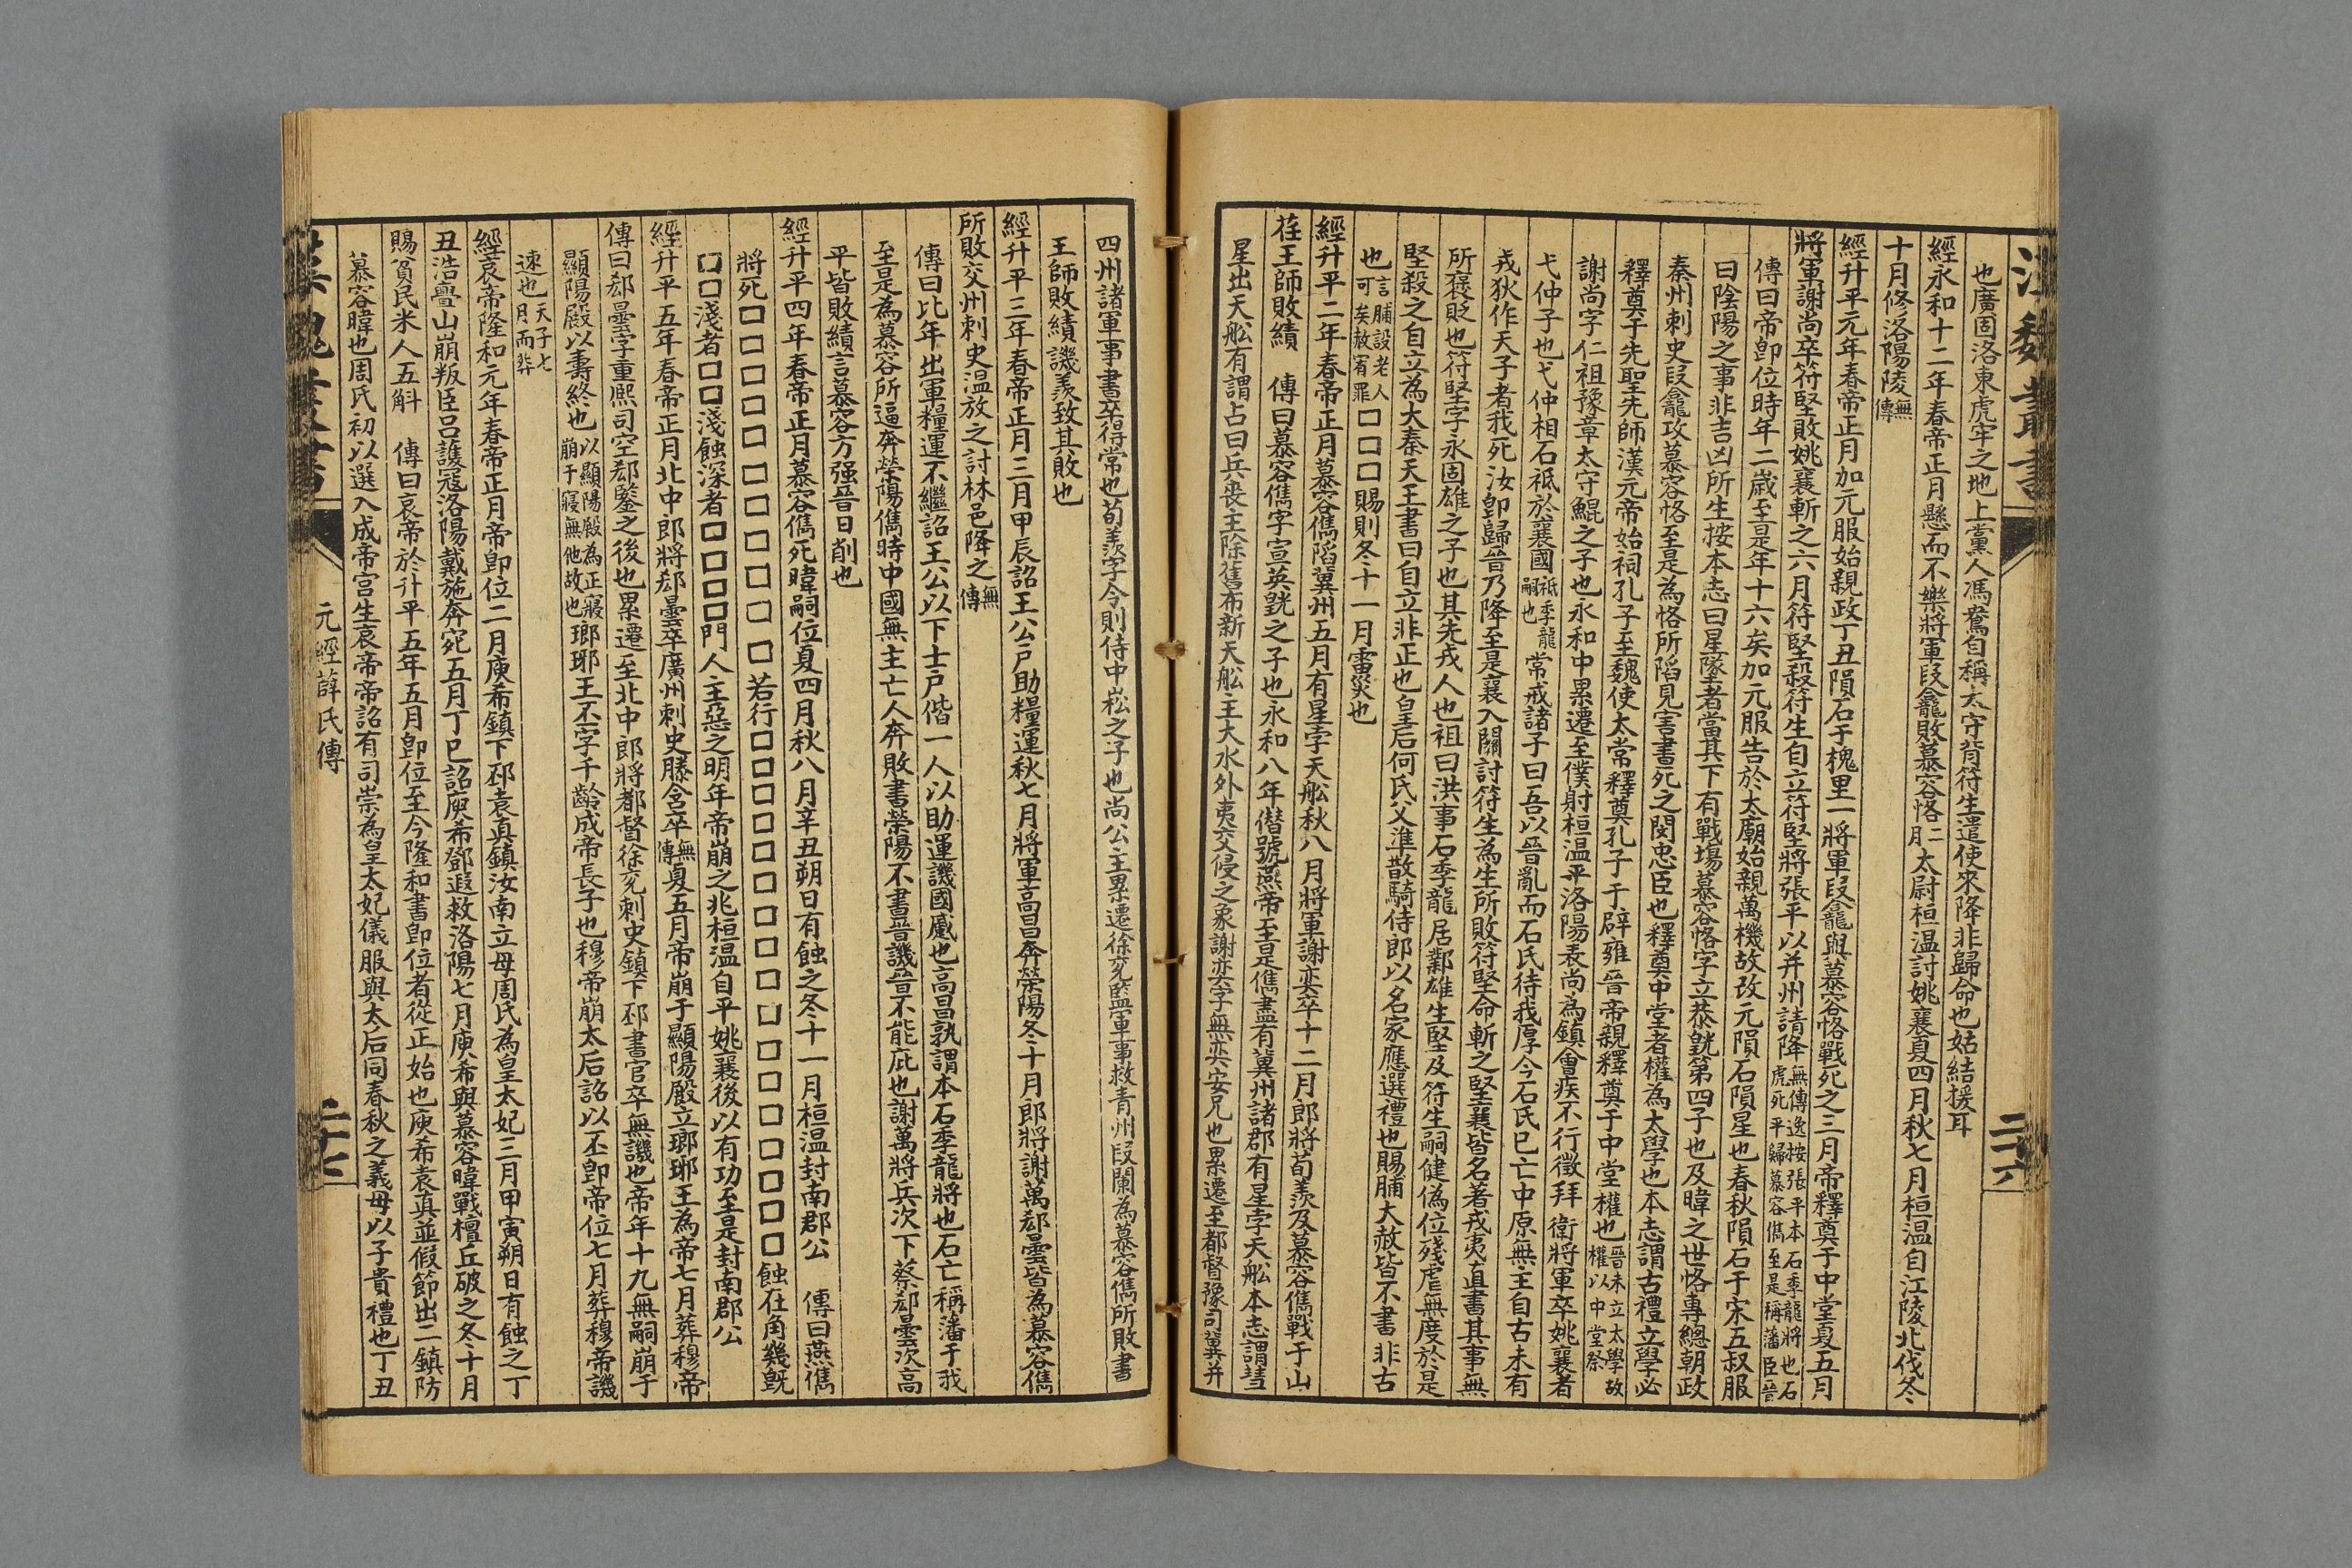 漢魏叢書
二十六
也廣固洛東虎牢之地上黨人馮鴦自稱太守背符生遣使來降非歸命也姑結援耳
經永和十二年春帝正月懸而不樂將軍段龕敗慕容恪二月太尉桓温討姚襄夏四月秋七月桓温自江陵北伐冬
十月修洛陽陵無傳
經升平元年春帝正月加元服始親政丁丑隕石于槐里一將軍段龕與慕容恪戰死之三月帝釋奠于中堂夏五月
將軍謝尚卒符堅敗姚襄斬之六月符堅殺符生自立符堅將張平以并州請降無傳逸按張平本石季龍將也石虎死平歸慕容儁至是稱藩臣晉
傳曰帝卽位時年二歲至是年十六矣加元服告於太廟始親萬機故改元隕石隕星也春秋隕石于宋五叔服
曰陰陽之事非吉凶所生按本志曰星墜者當其下有戰塲慕容恪字立恭皝第四子也及暐之世恪專總朝政
秦州刺史段龕攻慕容恪至是為恪所陷見害書死之閔忠臣也釋奠中堂者權為太學也本志謂古禮立學必
釋奠于先聖先師漢元帝始祠孔子至魏使太常釋奠孔子于辟雍晉帝親釋奠于中堂權也晉未立太學故權以中堂祭
謝尚字仁祖豫章太守鯤之子也永和中累遷至僕射桓温平洛陽表尚為鎮會疾不行徵拜衛將軍卒姚襄者
弋仲子也弋仲相石祗於襄國祗季龍嗣也常戒諸子曰吾以晉亂而石氏待我厚今石氏已亡中原無主自古未有
戎狄作天子者我死汝卽歸晉乃降至是襄入關討符生為生所敗符堅命斬之堅襄皆名著戎夷直書其事無
所襃貶也符堅字永固雄之子也其先戎人也祖曰洪事石季龍居鄴雄生堅及符生嗣健偽位殘虐無度於是
堅殺之自立為大秦天王書曰自立非正也皇后何氏父準散騎侍郎以名家應選禮也賜脯大赦皆不書非古
也言脯設老人可矣赦宥罪□□□賜則冬十一月雷災也
經升平二年春帝正月慕容儁陷冀州五月有星孛天船秋八月將軍謝奕卒十二月郎將荀羨及慕容儁戰于山
荏王師敗績　傳曰慕容儁字宣英皝之子也永和八年僣號燕帝至是儁盡有冀州諸郡有星孛天船本志謂彗
星出天船有謂占曰兵丧主除舊布新天船主大水外夷交侵之象謝奕字無奕安兄也累遷至都督豫司冀并
四州諸軍事書卒得常也荀羨字令則侍中崧之子也尚公主累遷徐兗監軍事救青州段蘭為慕容儁所敗書
王師敗績譏羨致其敗也
經升平三年春帝正月三月甲辰詔王公戶助糧運秋七月將軍高昌奔滎陽冬十月郎將謝萬郄曇皆為慕容儁
所敗交州刺史温放之討林邑降之無傳
傳曰比年出軍糧運不繼詔王公以下士戶偕一人以助運譏國蹙也高昌孰謂本石季龍將也石亡稱藩于我
至是為慕容所逼奔滎陽儁時中國無主亡人奔敗書滎陽不書晉譏晉不能庇也謝萬將兵次下蔡郄曇次高
平皆敗績言慕容方强晉日削也
經升平四年春帝正月慕容儁死暐嗣位夏四月秋八月辛丑朔日有蝕之冬十一月桓温封南郡公　傳曰燕儁
將死□□□□□□□□□□□若行□□□□□□□□□□□□□□□□□□蝕在角幾旣
□□淺者□□淺蝕深者□□□□門人主惡之明年帝崩之兆桓温自平姚襄後以有功至是封南郡公
經升平五年春帝正月北中郎將郄曇卒廣州刺史滕含卒無傳夏五月帝崩于顯陽殿立瑯琊王為帝七月葬穆帝
傳曰郄曇字重熙司空郄鑒之後也累遷至北中郎將都督徐兗刺史鎮下邳書官卒無譏也帝年十九無嗣崩于
顯陽殿以壽終也以顯陽殿為正寢崩于寢無他故也瑯琊王丕字千齡成帝長子也穆帝崩太后詔以丕卽帝位七月葬穆帝譏
速也天子七月而葬
經哀帝隆和元年春帝正月帝卽位二月庾希鎮下邳袁真鎮汝南立母周氏為皇太妃三月甲寅朔日有蝕之丁
丑浩亹山崩叛臣呂護寇洛陽戴施奔宛五月丁巳詔庾希鄧遐救洛陽七月庾希與慕容暐戰檀丘破之冬十月
賜貧民米人五斛　傳曰哀帝於升平五年五月卽位至今隆和書卽位者從正始也庾希袁真並假節出二鎮防
慕容暐也周氏初以選入成帝宫生哀帝帝詔有司崇為皇太妃儀服與太后同春秋之義母以子貴禮也丁丑
漢魏叢書
元經薛氏傳
二十七